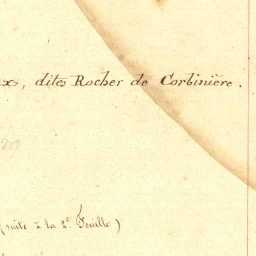 x, dites Rocher de Corbinière.
(suite à la 2e Feuille)